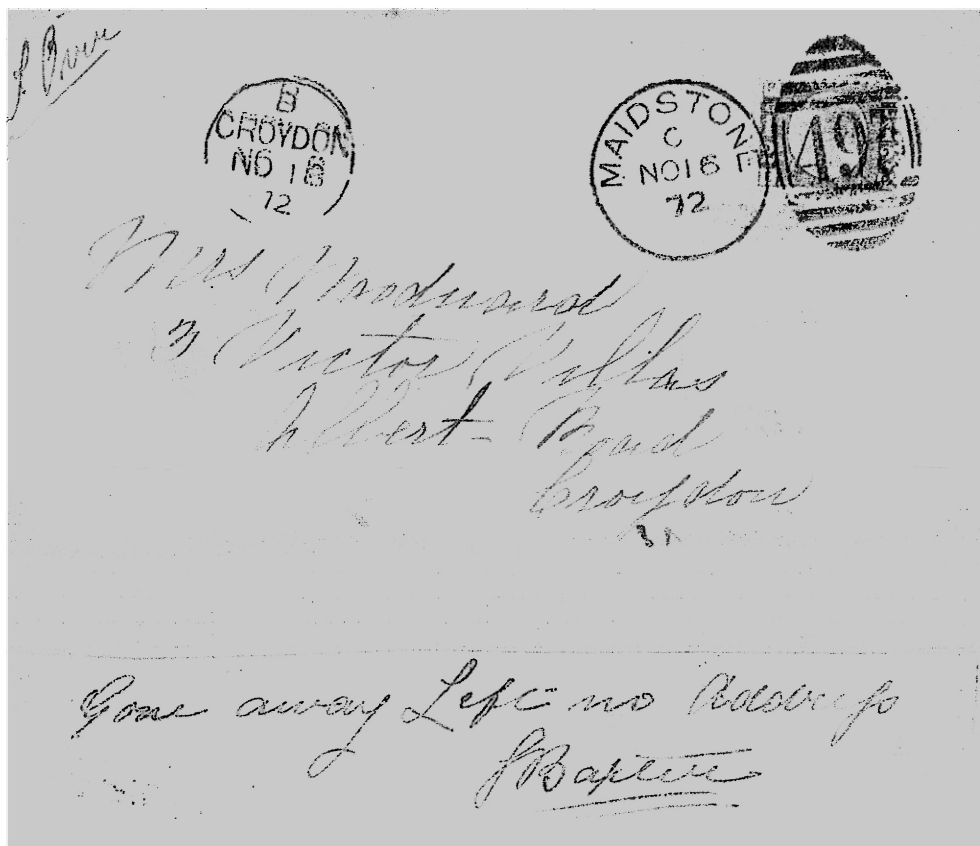 B
CROYDON
NO 18
72
MAIDSTONE
C
NO 16
72
497
Mrs Woodward
3 Victor Villas
Albert - Road
Croydon
Gone away Left no Address